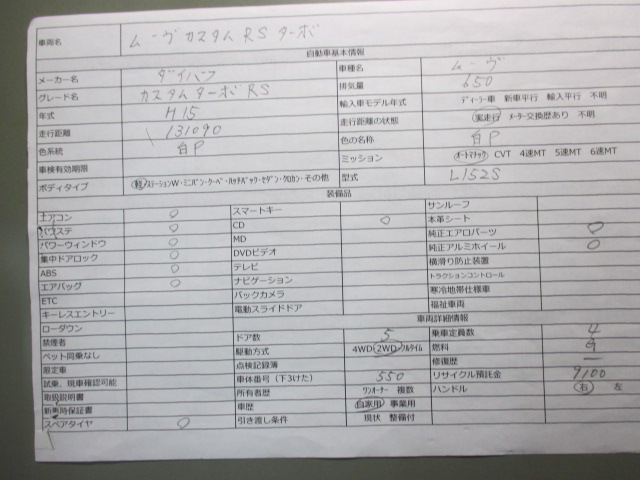 車両名 ムーヴ カスタム RS ターボ
自動車基本情報
メーカー名 ダイハツ 車種名 ムーヴ
グレード名 カスタムターボRS 排気量 650
年式 H15 輸入車モデル年式 ディーラー車 新車平行 輸入平行 不明
走行距離 131090 走行距離の状態 実走行 メーター交換歴あり 不明
色系統 白P 色の名称 白P
車検有効期限 ミッション オートマチック CVT 4速MT 5速MT 6速MT
ボディタイプ 軽・ステーションW・ミニバン・クーペ・ハッチバック・セダン・クロカン・その他 型式 L152S
装備品
エアコン ○ スマートキー サンルーフ
パワステ ○ CD ○ 本革シート
パワーウィンドウ ○ MD 純正エアロパーツ ○
集中ドアロック ○ DVDビデオ 純正アルミホイール ○
ABS ○ テレビ 横滑り防止装置
エアバッグ ○ ナビゲーション トラクションコントロール
ETC バックカメラ 寒冷地帯仕様車
キーレスエントリー 電動スライドドア 福祉車両
ローダウン 車両詳細情報
禁煙者 ドア数 5 乗車定員数 4
ペット同乗なし 駆動方式 4WD 2WD フルタイム 燃料
限定車 点検記録簿 修復歴 ー
試乗、現車確認可能 車体番号（下3けた） 550 リサイクル預託金 9100
取扱説明書 所有者歴 ワンオーナー 複数 ハンドル 右 左
新車時保証書 車歴 自家用 事業用
スペアタイヤ ○ 引き渡し条件 現状 整備付